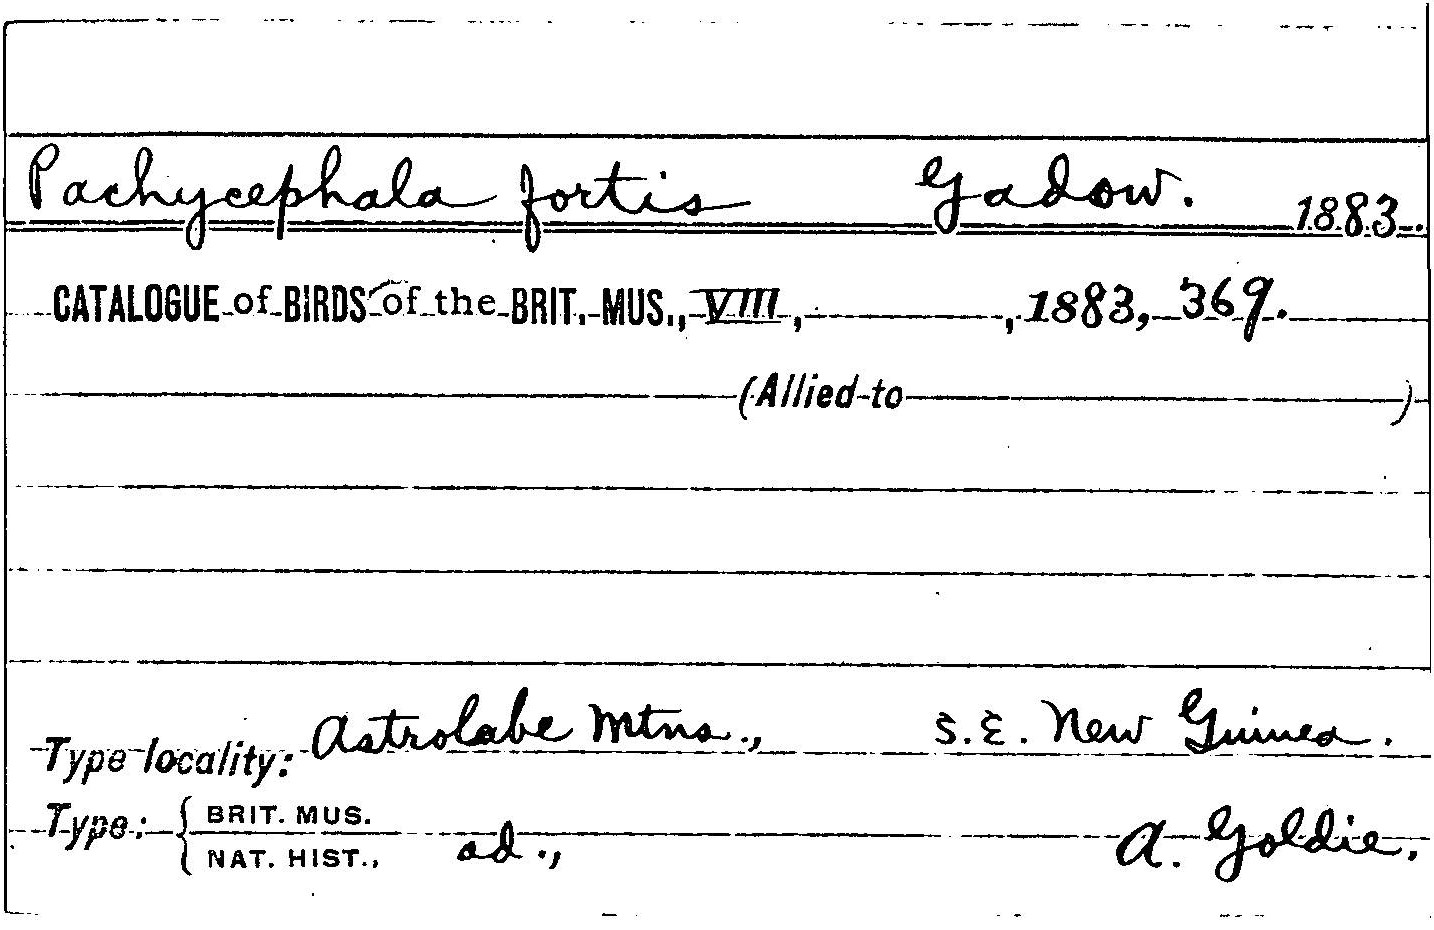 Pachycephala fortis Gadow. 1883.
CATALOGUE of BIRDS of the BRIT. MUS., VIII, , 1883, 369.
(Allied to )
Type locality: Astrolabe Mtns., S.E. New Guinea.
Type: { BRIT. MUS.
NAT. HIST., ad., A. Goldie.